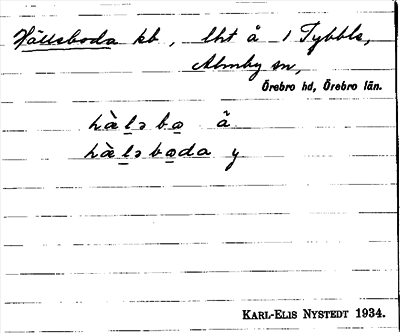 Hällsboda kb, lht å 1 Tybble,
Almby sn,
Örebro hd, Örebro län.
hä̀l̠ə bo̠ ä
hä̀l̠ə bo̠da y
KARL-ELIS NYSTEDT 1934.